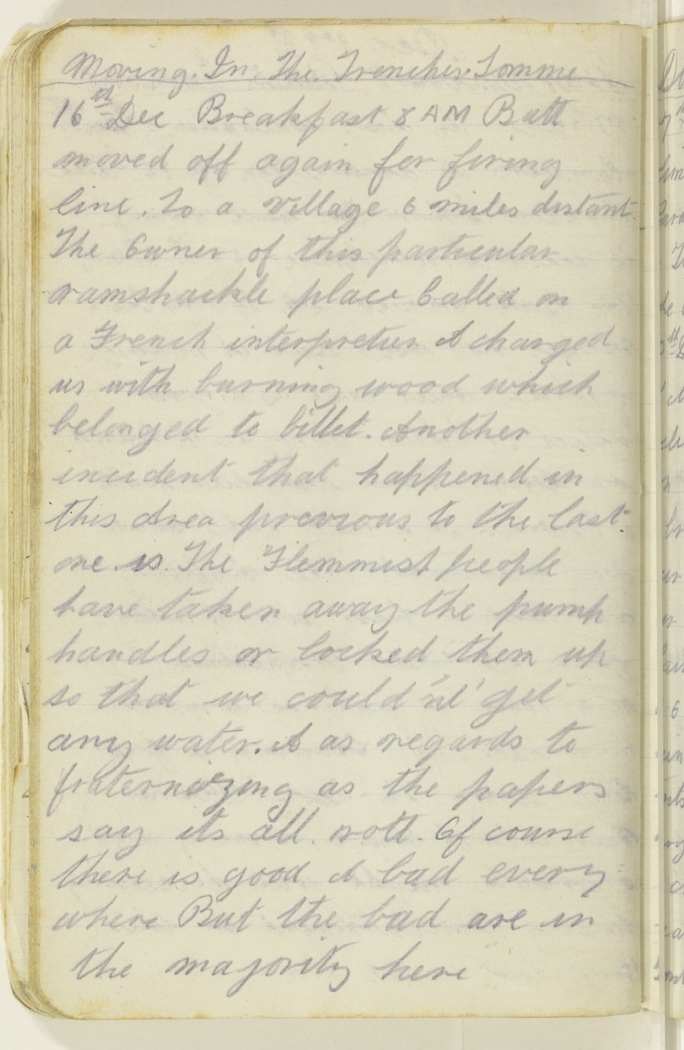 Moving. In. The. Trenches. Somme
16th Dec Breakfast 8 AM Batt
moved off again for firing
line. To a village 6 miles distant.
The Owner of this particular
ramshackle place Called on
a French interpreter & charged
us with burning wood which
belonged to billet. Another
incident that happened in
this Area previous to the last
one. is The Flemmist people
have taken away the pump
handles or locked them up
so that we could'nt' get
any water. & as regards to
fraternizing as the papers
say its all rott. Of course
there is good & bad every
where But the bad are in
the majority here